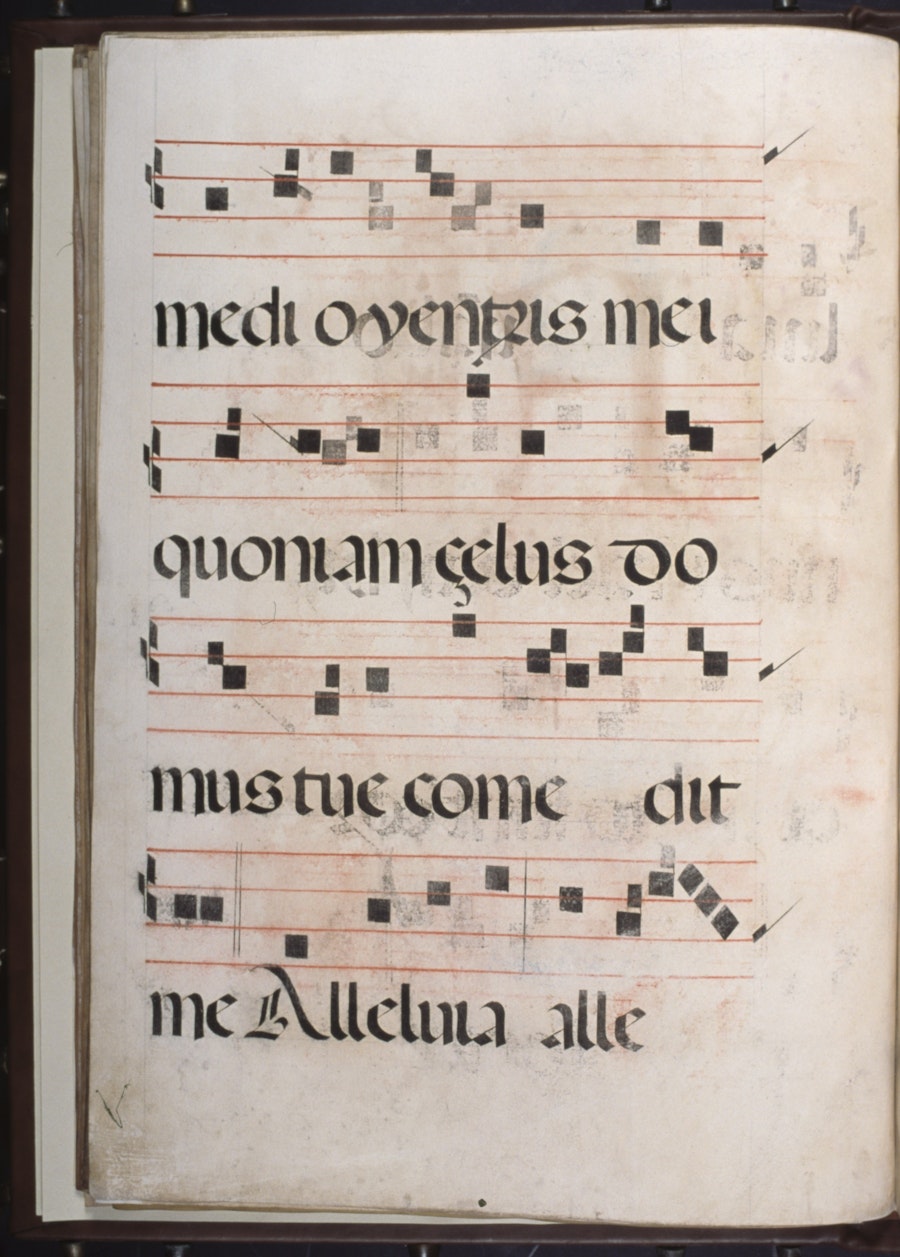 medio ventris mei
quoniam çelus do
mus tue come dit
me Alleluia alle